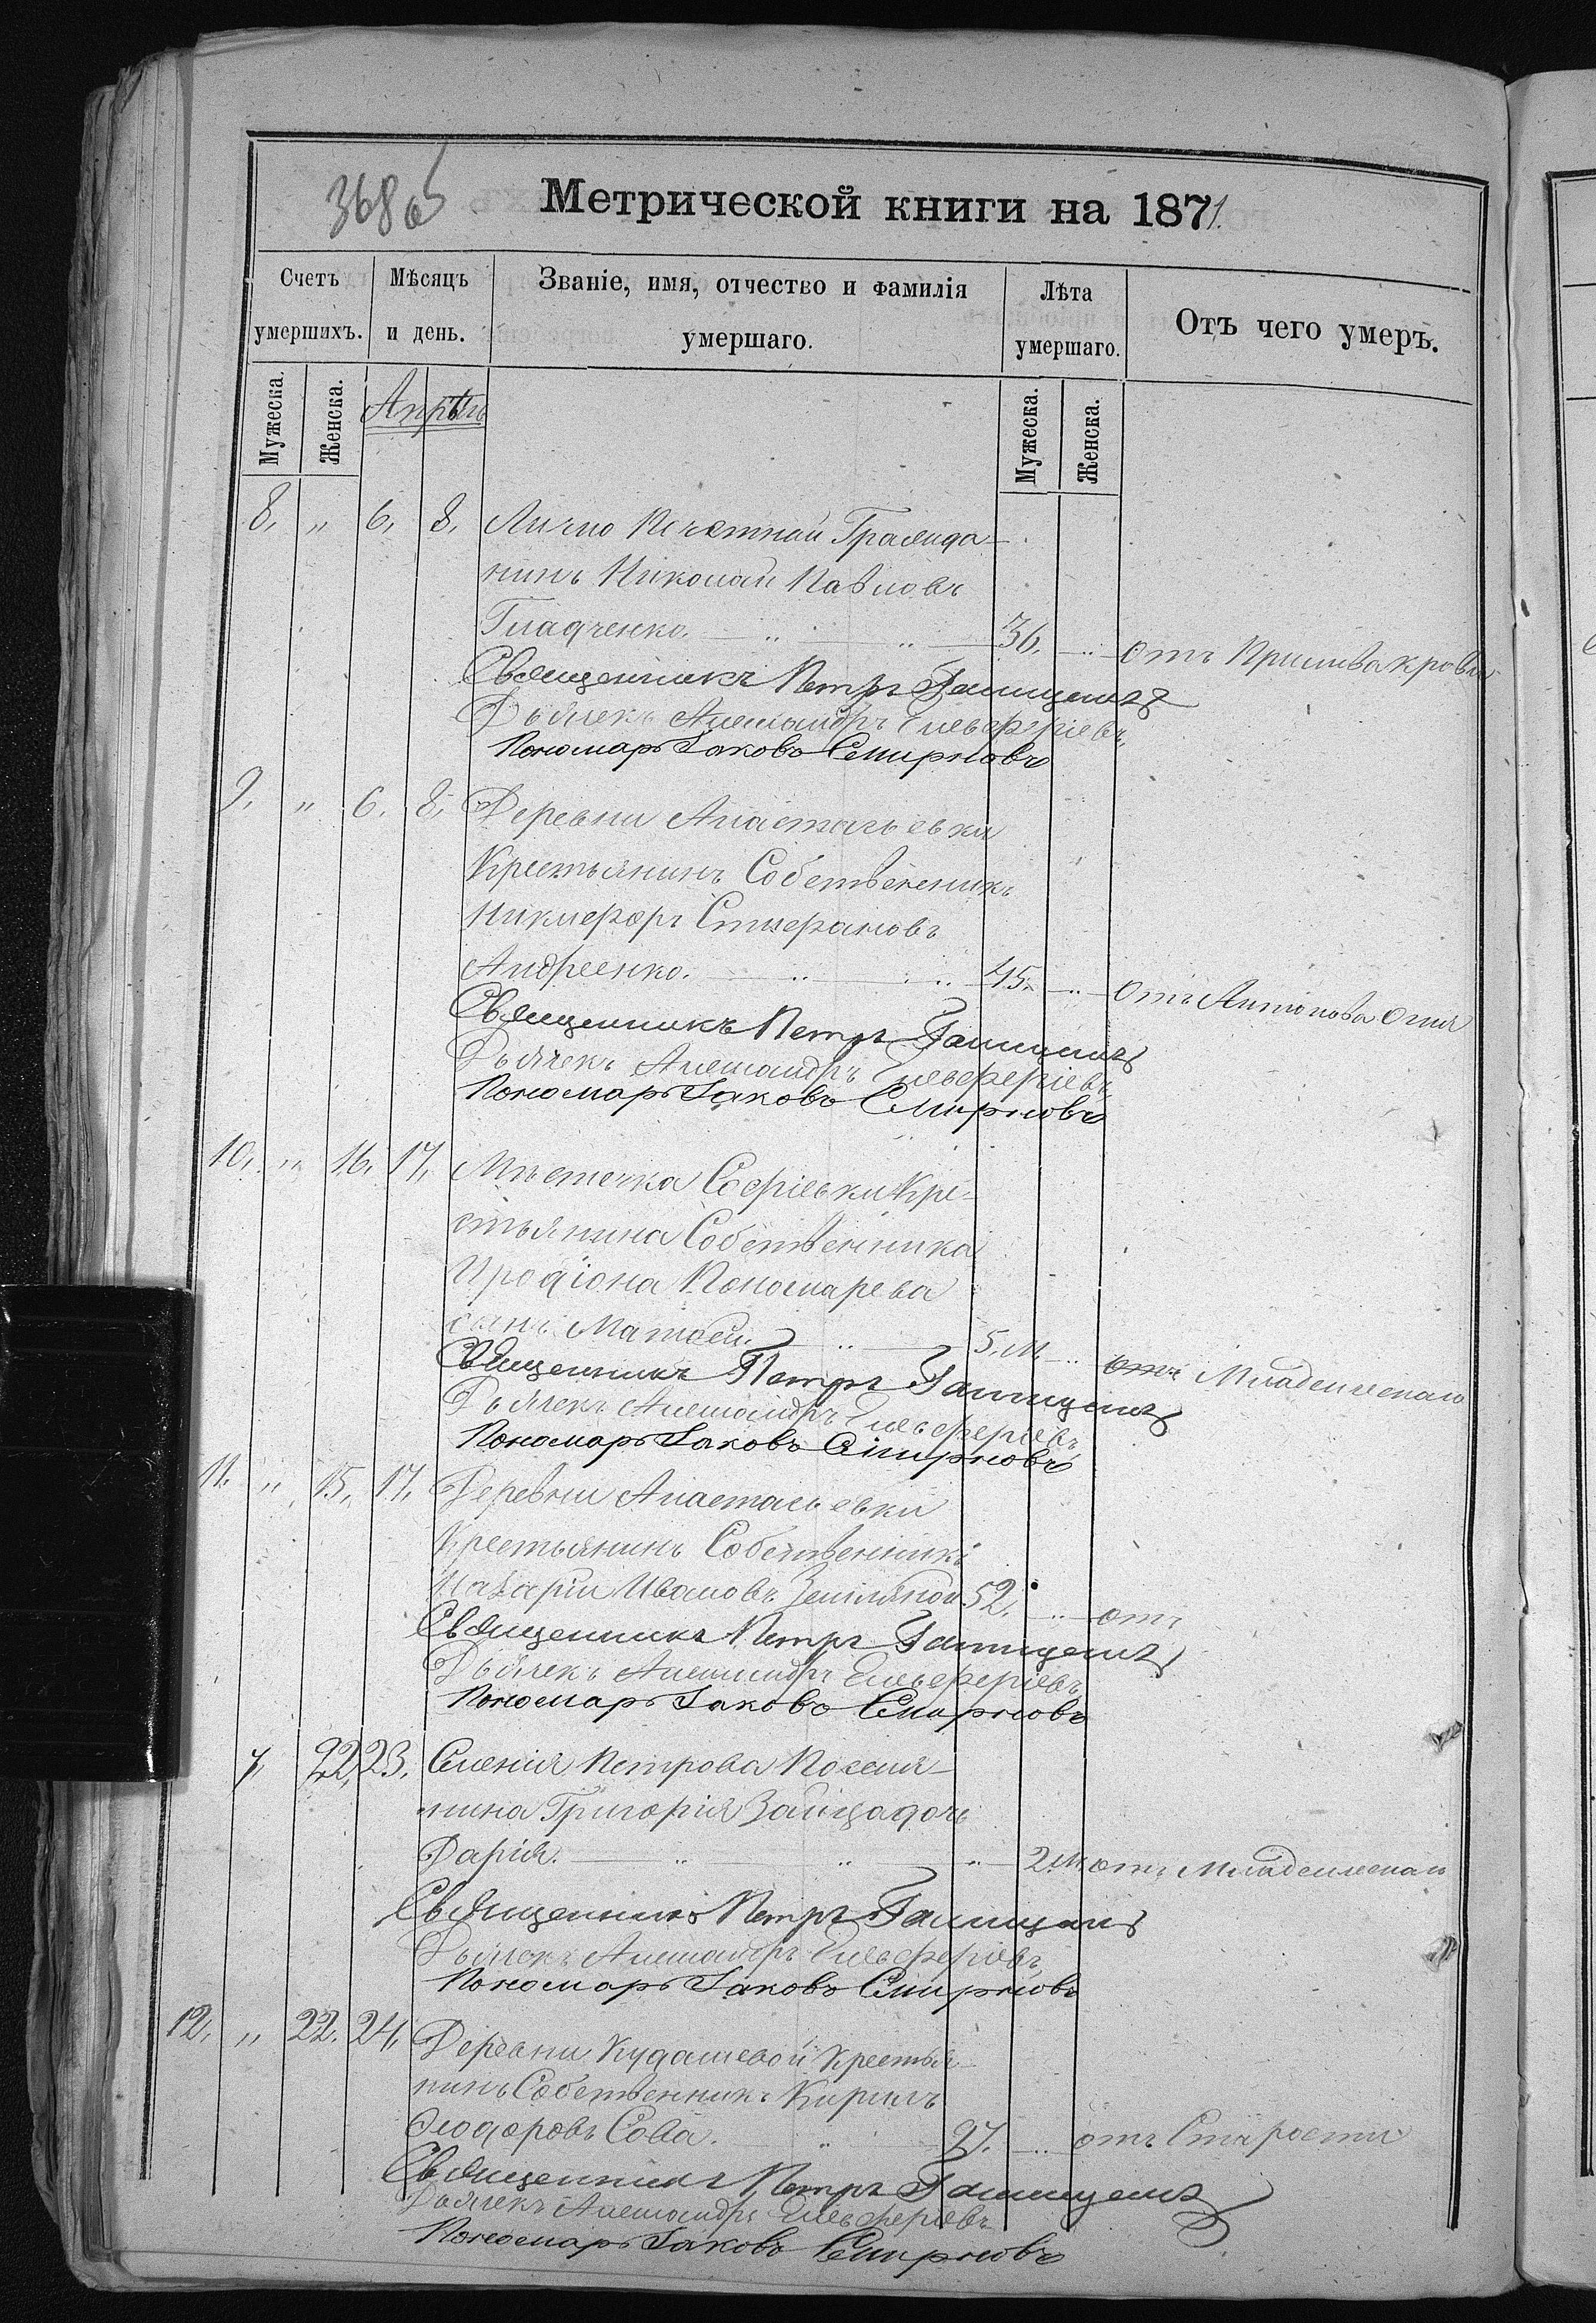 368 об
Метрической книги на 1871.
Счетъ умершихъ.
Мѣсяцъ и день.
Званіе, имя, отчество и фамилія умершаго.
Лѣта умершаго.
Отъ чего умеръ.
Мужеска.
Женска.
Апрѣль
Мужеска.
Женска.
8. " 6. 8. Лично Почетный Гражда-
нинъ Николай Павловъ
Гладченко. 36. " Отъ Прилива крови
Священникъ Петръ
Дьячекъ Александръ Елевферіевъ
Пономарь Іаковъ Смирновъ
9. " 6. 8. Деревни
Крестьянинъ Собственникъ
Никифоръ Стефановъ
Андреенко. 45. " Отъ Антонова Огня
Священникъ Петръ
Дьячекъ Александръ Елевферіевъ
Пономарь Іаковъ Смирновъ
10. " 16. 17. Мѣстечка Софіевки Кре-
стьянина Собственника
Иродіона Пономарева
сынъ Матѳей. 5. м. " отъ Младенческаго
Священникъ Петръ
Дьячекъ Александръ Елевферіевъ
Пономарь Іаковъ Смирновъ
11. " 15. 17. Деревни
Крестьянинъ Собственникъ
Иванов 52. " отъ
Священникъ Петръ
Дьячекъ Александръ Елевферіевъ
Пономарь Іаковъ Смирновъ
7. 22. 23. Селенія Петрова Поселя-
нина Григорія дочь
Дарія. " " " 2 м. отъ Младенческаго
Священникъ Петръ
Дьячекъ Александръ Елевферіевъ
Пономарь Іаковъ Смирновъ
12. " 22. 24. Деревни Кудашевой Крестья-
нинъ Собственникъ Кирилъ
Ѳеодоровъ Сова. " " отъ Старости
Священникъ Петръ
Дьячекъ Александръ Елевферіевъ
Пономарь Іаковъ Смирновъ